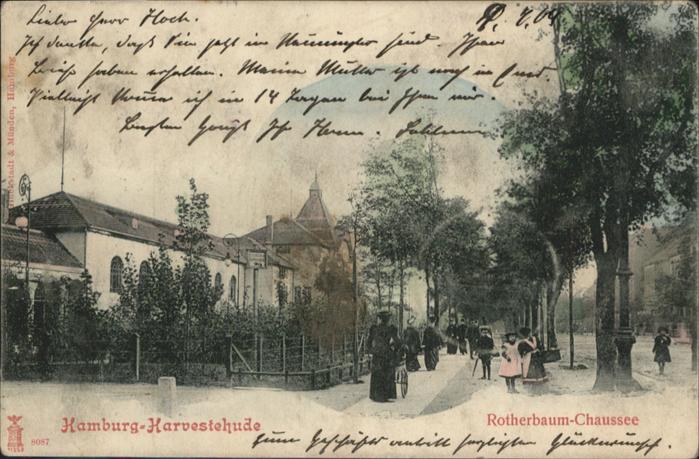 Lieber Herr Hoch.
4.04
Ich dachte, daß Sie jetzt in sind. Ihren
Brief haben erhalten. Meine Mutter ist noch in
Vielleicht komme ich in 14 Tagen bei Ihnen vor.
Besten Gruß Ihr Herm.
Knackstedt & Münden, Hamburg
Hamburg-Harvestehude
Rotherbaum-Chaussee
8087
Zum Geschäfts antritt herzlichsten Glückwunsch.